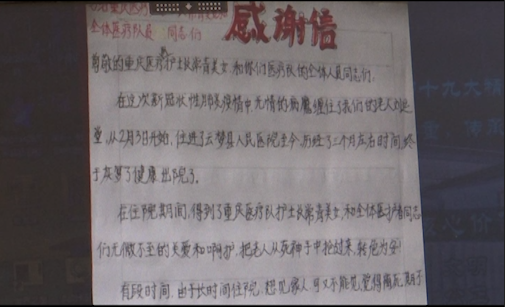 感谢信
全体医疗队员 同志们
尊敬的重庆医疗护士长常青美女 和你们医疗队的全体人员同志们.
在这次新冠状性肺炎疫情中 无情的病魔缠住了我们的老人
从2月3日开始, 住进了云梦县人民医院至今, 历经了二个月左右时间, 终
于灰复了健康 出院了。
在住院期间, 得到了重庆医疗队护士长常青美女 和全体医护者同志
们无微不至的关爱和呵护 把老人从死神手中抢过来, 转危为安
有段时间, 由于长时间住院, 想见家人 可又不能见, 觉得痛苦,
十九大精